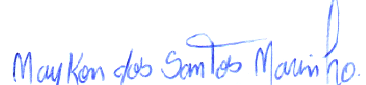 Maykon dos Santos Marinho.